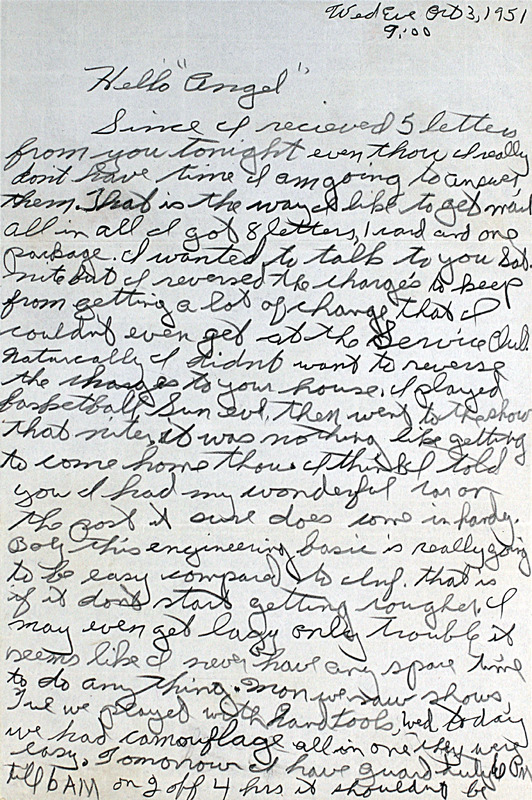 Wed Eve Oct 3, 1951
9:00
Hello "Angel"
Since I recieved 5 letters
from you tonight even thou I really
dont have time I am going to answer
them. That is the way I like to get mail
all in all I got 8 letters, 1 card and one
package. I wanted to talk to you Sat.
nite but I reversed the charges to keep
from getting a lot of change that I
couldnt even get at the Service Club
Naturally I didnt want to reverse
the charges to your house. I played
basketball Sun eve, then went to the show
that nite, it was nothing like getting
to come home thou. I think I told
you I had my wonderful car on
the post it sure does come in handy.
Boy this engineering basic is really going
to be easy compared to Inf. that is
if it dont start getting rougher. I
may even get lazy only trouble it
seems like I never have any spare time
to do any thing. Mon we saw shows,
Tue we played with handtools, wed today
we had camouflage all in one they were
easy. Tomorrow I have guard duty 6 PM
till 6 AM on 2 off 4 hrs it shouldnt be